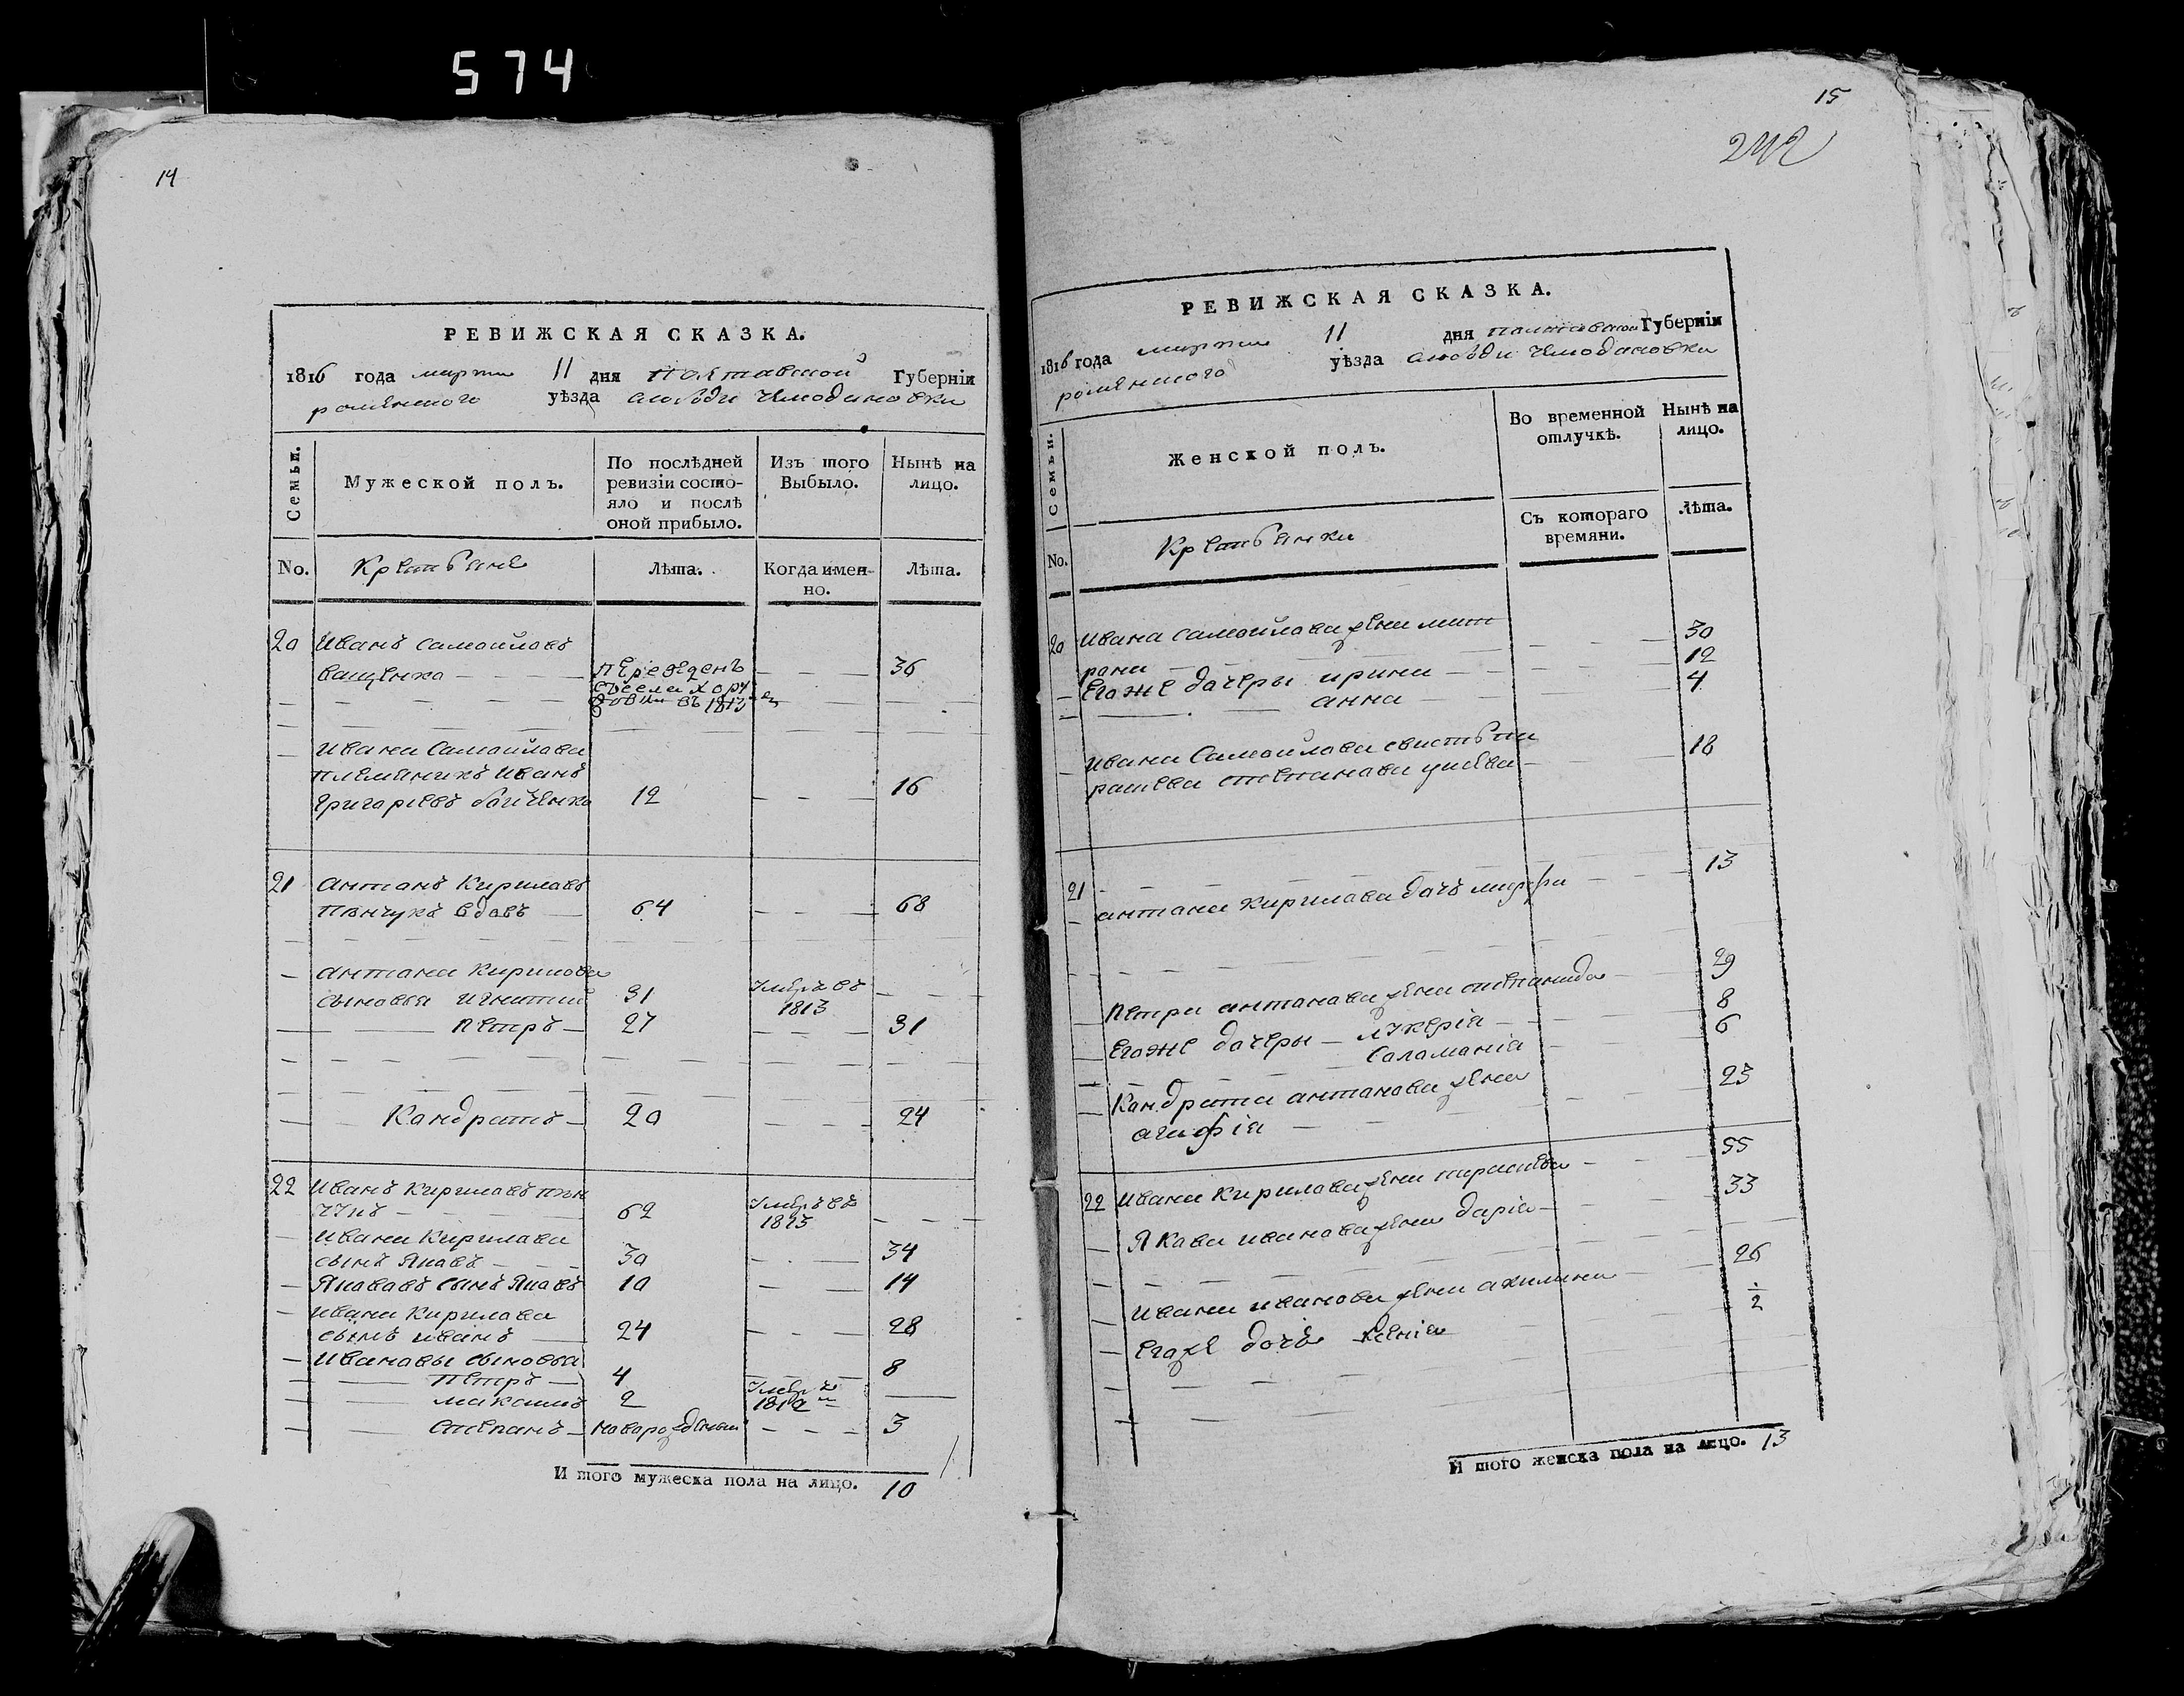 574
14
РЕВИЖСКАЯ СКАЗКА.
1816 года марта 11 дня Полтавской Губерніи
роменского уѣзда слободи Чемодановки
Семьи.
Мужеской полъ.
По послѣдней ревизіи состояло и послѣ оной прибыло.
Изъ того Выбыло.
Нынѣ на лицо.
No.
Крестьяне
Лѣта.
Когда именно.
Лѣта.
20 Иванъ Самойловъ
ващенко переведенъ 36
въ 1813
Ивана Самойлова
племяникъ Иванъ
Григориевъ 12 16
21 антонъ Кириловъ
вдовъ 64 68
антона Кирилова
сыновья игнатий 31 умеръ въ 1813
петръ 27 31
Кандратъ 20 24
22 Иванъ Кириловъ пин
чукъ 62 умеръ въ 1813
Ивана Кирилова
сынъ Яковъ 30 34
Яковавъ сынъ Яковъ 10 14
Ивана Кирилова
сынъ иванъ 24 28
Ивановы сыновья
петръ 4 8
макаимъ 2 умеръ 1812
степанъ новорожденый 3
И того мужеска пола на лицо. 10
15
242
РЕВИЖСКАЯ СКАЗКА.
1816 года марта 11 дня полтавской Губерніи
роменского уѣзда слободи Чемодановки
Семьи.
Женской полъ.
Во временной отлучкѣ.
Нынѣ на лицо.
No.
Крестьянки
Съ котораго времяни.
Лѣта.
20 Ивана Самойлова жена мит
рана 30
Егоже дочеры ирина 12
анна 4
Ивана Самойлова
степанова 18
21 антона Кирилова дочъ марфа 13
Петра антонова жена степанида 29
Егоже дочеры лукерія 8
Саламанія 6
Кандрата антонова жена 23
агафія
22 Ивана Кирилова жена параскева 55
Якова иванова жена дарія 33
Ивана иванова жена акилина 26
Егоже дочъ ксенія ½
И того женска пола на лицо. 13